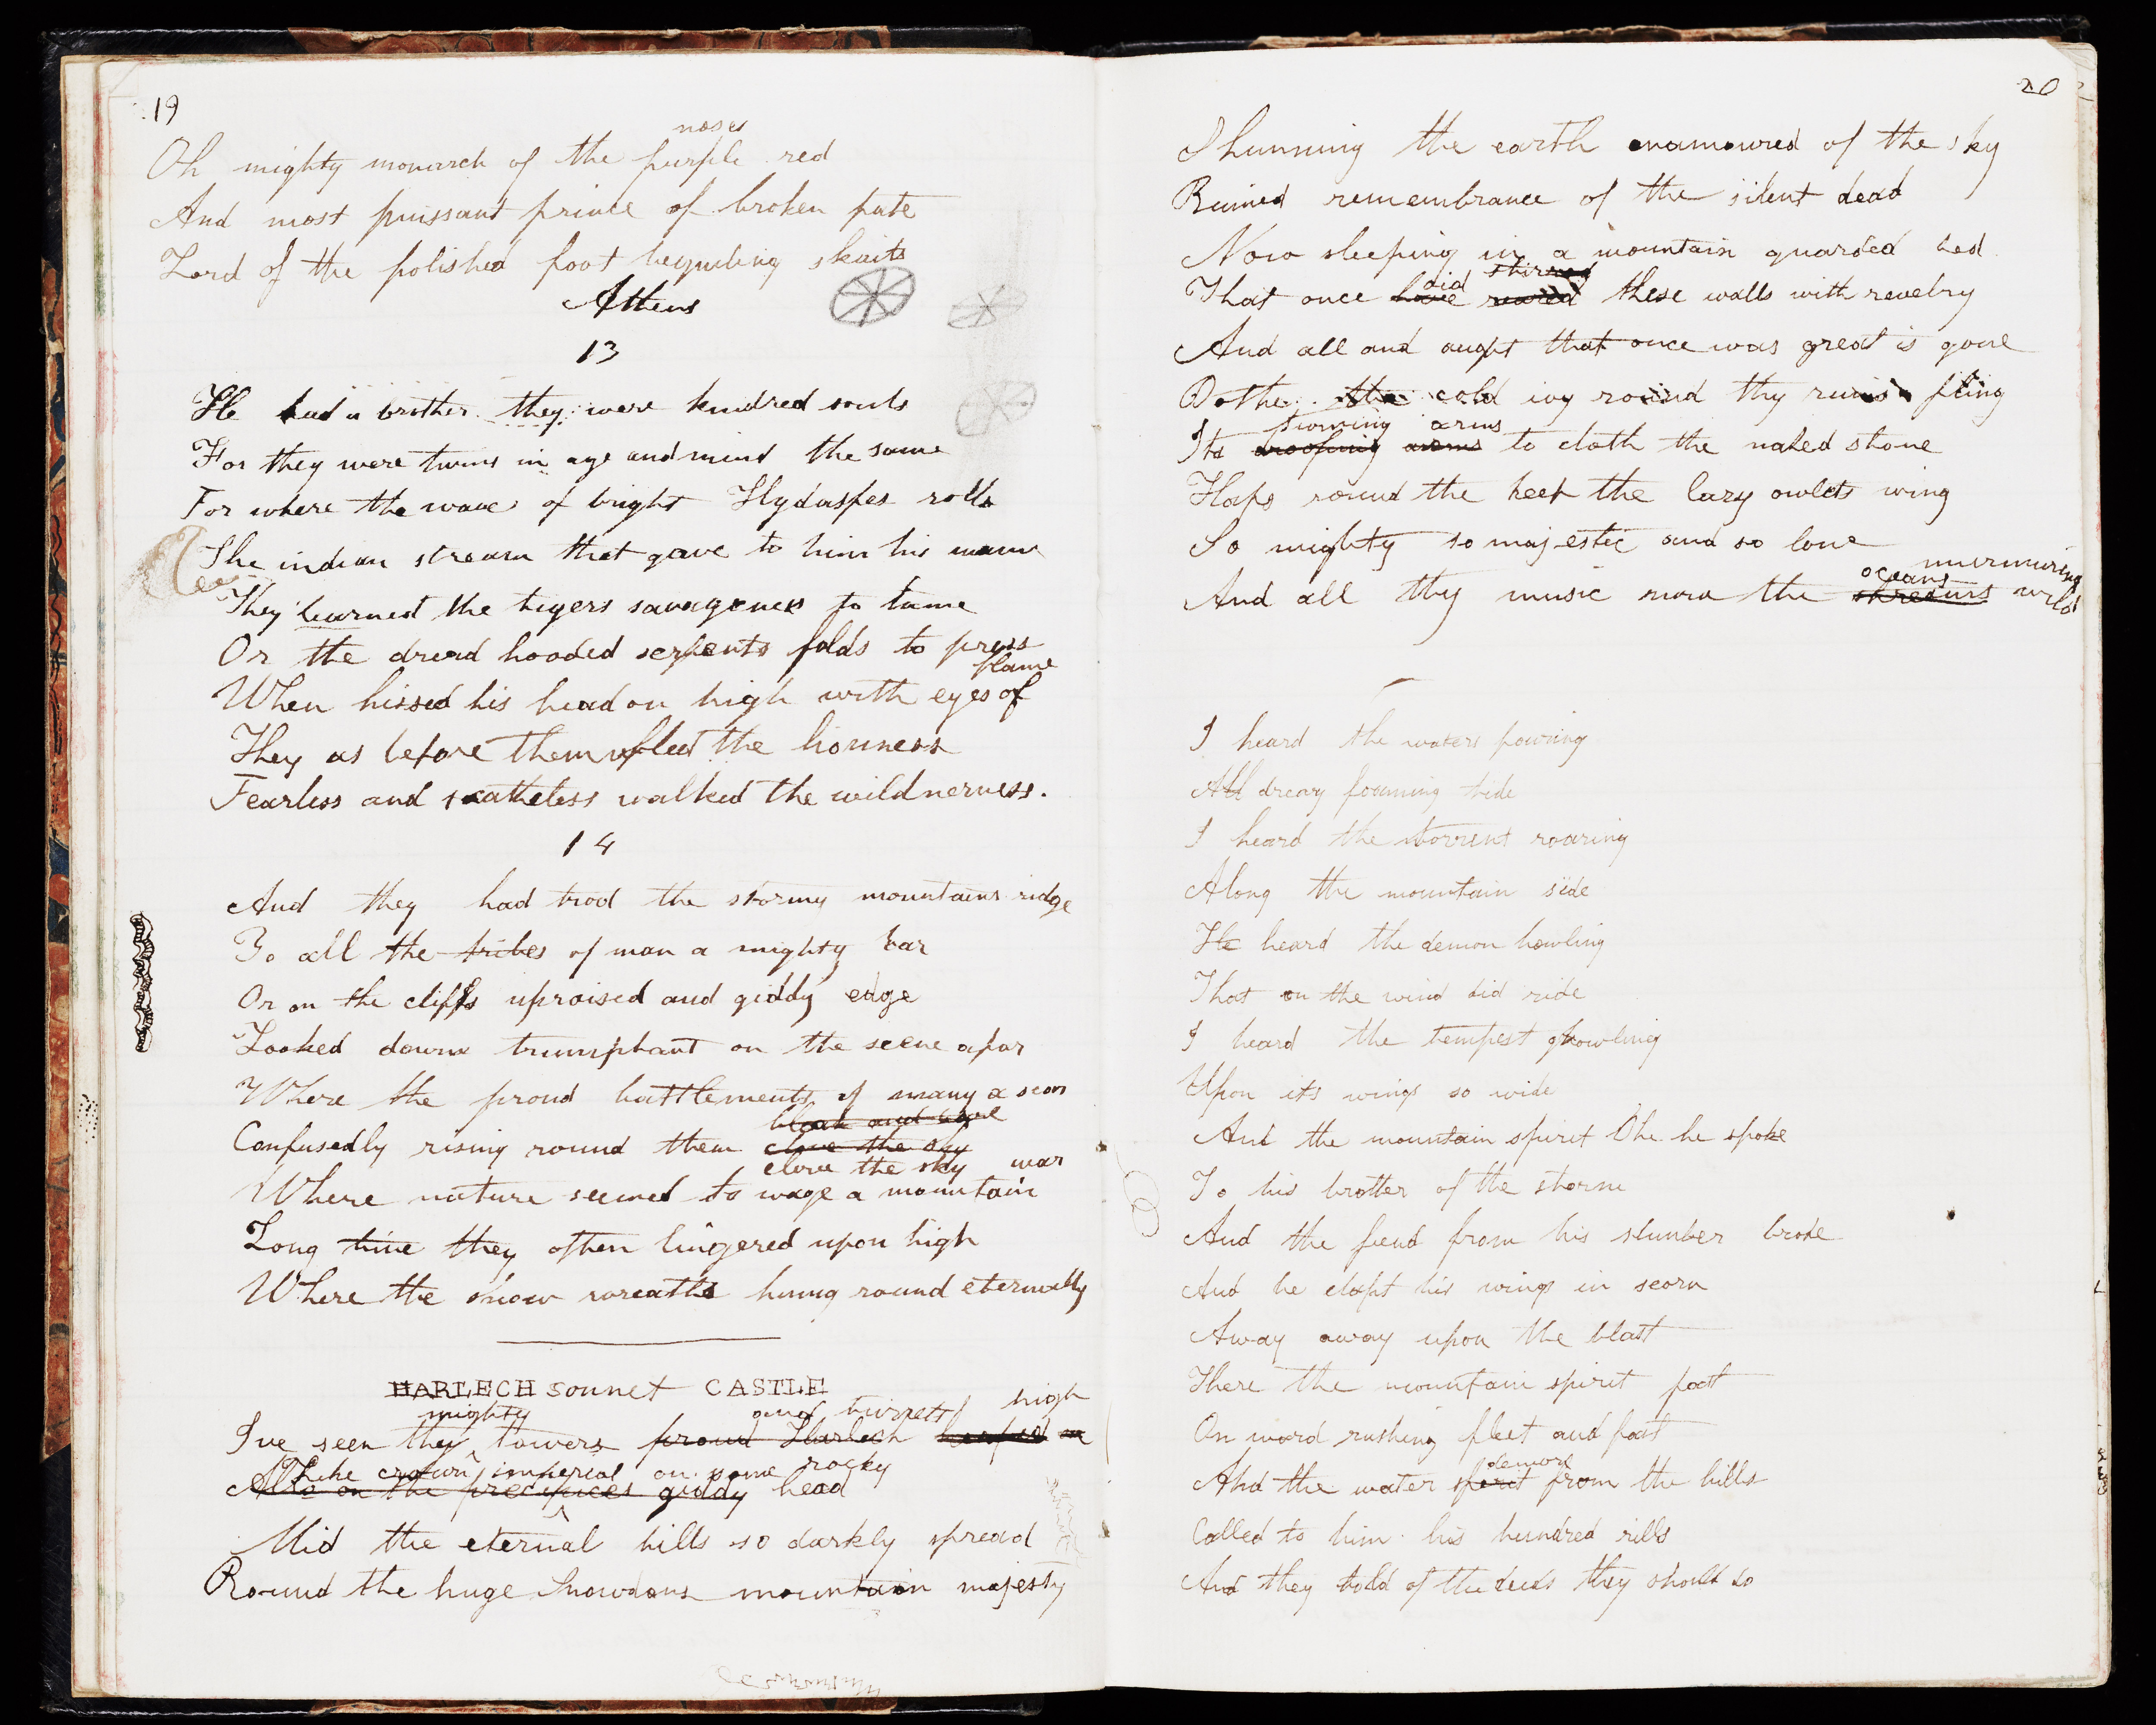 19
noses
Oh mighty monarch of the purple red
And most puissant prince of broken pate
Lord of the polished foot beguiling skaits
Athens
13
He had a brother they were kindred souls
For they were twins in age and mind the same
For where the wave of bright Hydaspes rolls
The indian stream that gave to him his name
They learned the tigers savageness to tame
Or the dread hooded serpents folds to press
flame
When hissed his head on high with eyes of
They as before them fled the lionness
Fearless and scatheless walked the wildnerness.
14
And they had trod the stormy mountains ridge
To all the tribes of man a mighty bar
Or on the cliffs upraised and giddy edge
Looked down triumphant on the scene afar
Where the proud battlements of many a scar
bleak and bare
Confusedly rising round them clove the sky
clove the sky war
Where nature seemed to wage a mountain
Long time they often lingered upon high
Where the snow wreaths hung round eternally
HARLECH sonnet CASTLE
mighty and turrets high
Ive seen thy towers proud Harlech heaped
Like crown imperial on some rocky
Also on the precipices giddy head
Mid the eternal hills so darkly spread
Round the huge Snowdons mountain majesty
20
Shunning the earth enamoured of the sky
Ruined remembrance of the silent dead
Now sleeping in a mountain guarded bed
did stirred
That once have reared these walls with revelry
And all and aught that once was great is gone
Dothe the cold ivy round thy ruins fling
arms
Its drooping arms to cloth the naked stone
Flaps round the keep the lazy owlets wing
So mighty so majestic and so lone
oceans murmuring
And all thy music now the streams wild
I heard the waters pouring
All dreary foaming tide
I heard the torrent roaring
Along the mountain side
He heard the demon howling
That on the wind did ride
I heard the tempest growling
Upon its wings so wide
And the mountain spirit Oh he spoke
To his brotter of the storm
And the fiend from his slumber broke
And he clapt his wings in scorn
Away away upon the blast
There the mountain spirit past
On word rushing fleet and fast
demon
And the water spirit from the hills
Called to him his hundred rills
And they told of the deeds they should do